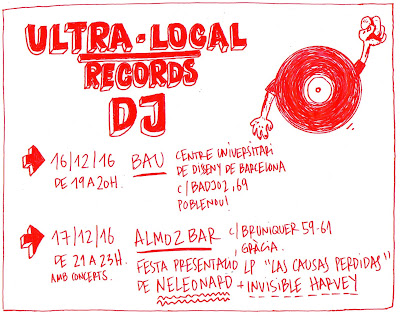 ULTRA-LOCAL
RECORDS
DJ
16/12/16
DE 19 A 20H.
BAU
CENTRE UNIVERSITARI
DE DISENY DE BARCELONA
C/BADJOZ, 69
POBLENOU!
17/12/16
DE 21 A 23H.
AMB CONCERTS.
ALMOZ BAR
C/ BRUNIQUER 59-61
GRÀCIA.
FESTA PRESENTACIÓ LP "LAS CAUSAS PERDIDAS"
DE NELEONARD + INVISIBLE HARVEY